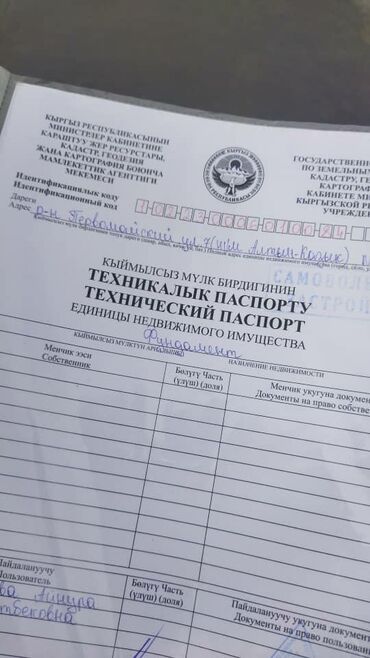 КЫРГЫЗ РЕСПУБЛИКАСЫНЫН
МИНИСТРЛЕР КАБИНЕТИНЕ
КАРАШТУУ ЖЕР РЕСУРСТАРЫ,
КАДАСТР, ГЕОДЕЗИЯ
ЖАНА КАРТОГРАФИЯ БОЮНЧА
МАМЛЕКЕТТИК АГЕНТТИГИ
МЕКЕМЕСИ
ГОСУДАРСТВЕН
ПО ЗЕМЕЛЬНЫ
КАДАСТРУ, ГЕ
КАРТОГРАФ
КАБИНЕТЕ М
КЫРГЫЗСКОЙ Р
УЧРЕЖДЕ
Идентификациялык коду
Идентификационный код
Дареги
Адрес р-н Первомайский ул. ж/м Алтын-Казык
САМОВОЛЬ
СТРОЙ
КЫЙМЫЛСЫЗ МҮЛК БИРДИГИНИН
ТЕХНИКАЛЫК ПАСПОРТУ
ТЕХНИЧЕСКИЙ ПАСПОРТ
ЕДИНИЦЫ НЕДВИЖИМОГО ИМУЩЕСТВА
Фундамент
КЫЙМЫЛСЫЗ МҮЛКТҮН
НАЗНАЧЕНИЕ НЕДВИЖИМОСТИ
Менчик ээси
Собственник
Бөлүгү Часть
(үлүш) (доля)
Менчик укугуна докумен
Документы на право собстве
Пайдалануучу
Пользователь
Бөлүгү Часть
(үлүш) (доля)
Пайдалануучу укугуна докум
Документы на право пользован
ва Айнура
бековна